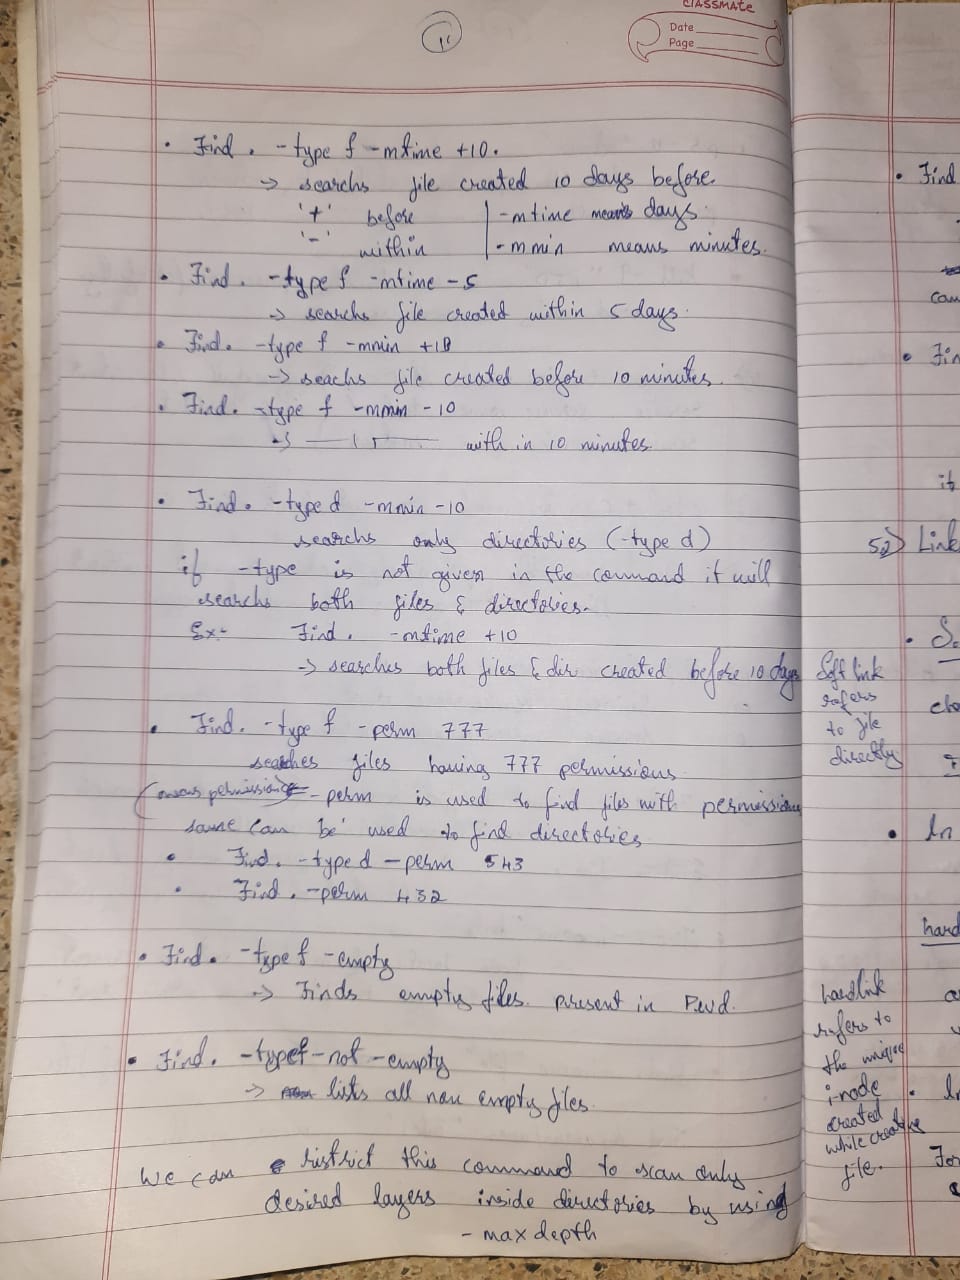 classmate
Date
Page
11
• Find . -type f -mtime +10.
→ searchs file created 10 days before.
'+' before | -mtime means days.
'-' within | -mmin means minutes.
• Find . -type f -mtime -5
→ searchs file created within 5 days.
• Find . -type f -mmin +10
→ seachs file created before 10 minutes.
• Find . -type f -mmin -10
→ with in 10 minutes.
• Find . -type d -mmin -10
searchs only directories (-type d)
if -type is not given in the command it will
searchs both files & directories.
Ex:- Find . -mtime +10
→ searches both files & dir created before 10 days
• Find . -type f -perm 777
searches files having 777 permissions.
-perm is used to find files with permissions
same can be used to find directories
• Find . -type d -perm 543
• Find . -perm 432
• Find . -type f -empty
→ Finds empty files present in Pwd.
• Find . -type f -not -empty
→ lists all non empty files.
We can ristrict this command to scan only
desired layers inside directories by using
- max depth
• Find
• Fin
it
52) Link
Soft link
refers
to file
directly
• ln
hard
hardlink
refers to
the unique
i-node
created
while creating
file.